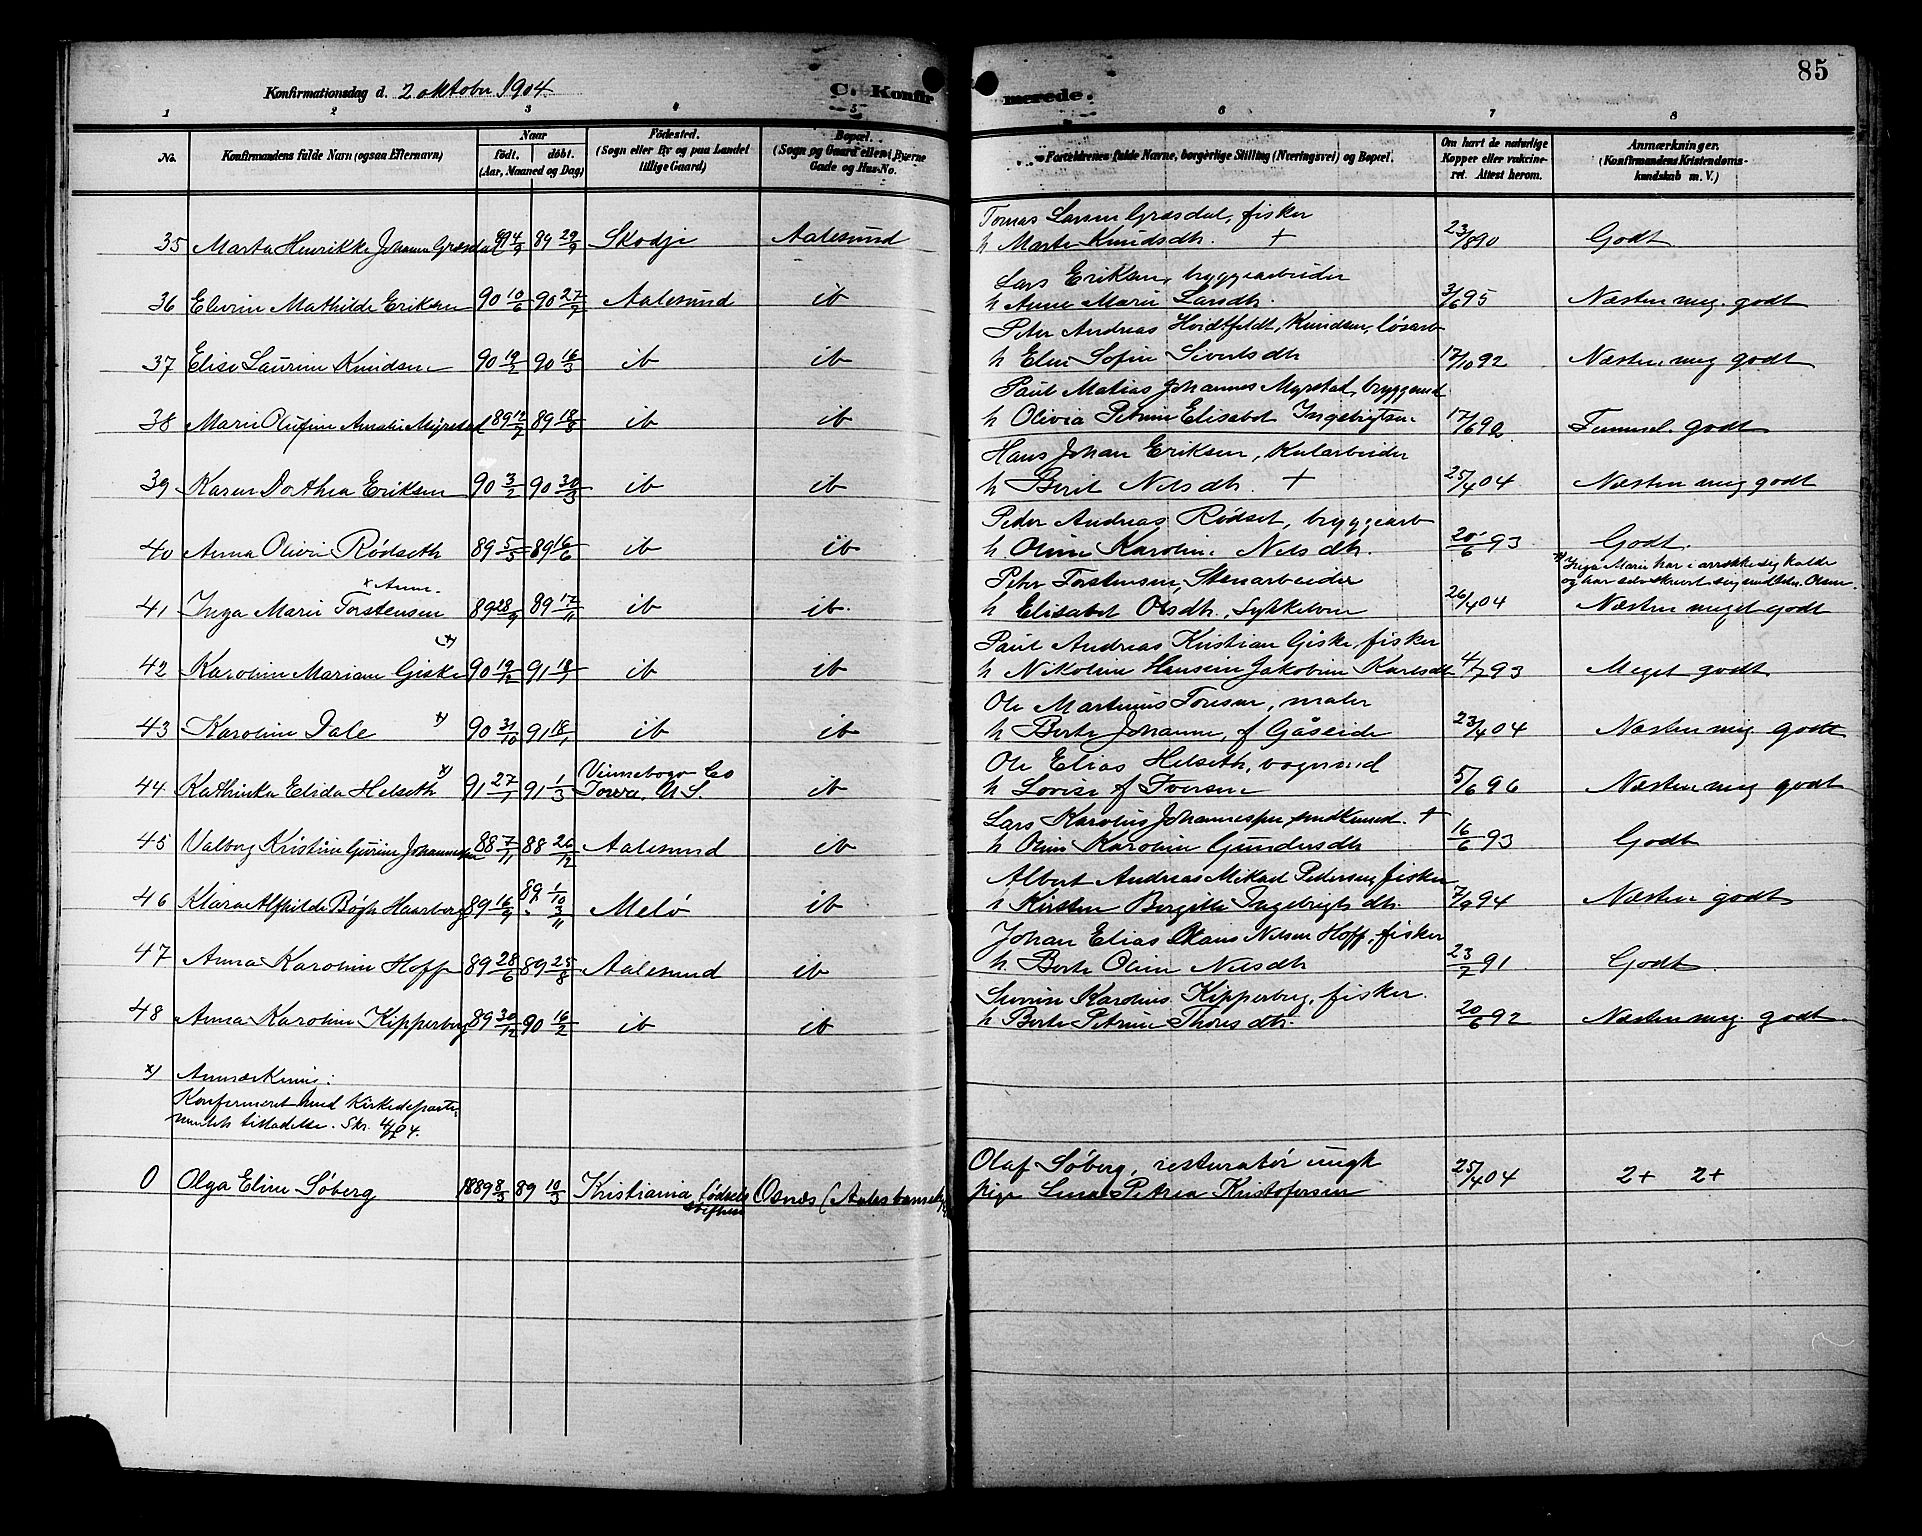 85
Konfirmationsdag d. 2 oktober 1904
C. Konfirmerede.
1 2 3 4 5 6 7 8
No. Konfirmandens fulde Navn (ogsaa Efternavn) Naar født. døbt. (Aar, Maaned og Dag) Fødested. (Sogn eller By og paa Landet tillige Gaard) Bopæl. (Sogn og Gaard eller i Byerne Gade og Hus-No. Forældrenes fulde Navne, borgerlige Stilling (Næringsvei) og Bopæl. Om havt de naturlige Kopper eller vakcineret. Attest herom. Anmærkninger. (Konfirmandens Kristendomskundskab m. V.)
Tomas Larsen Græsdal, fisker
35 Marta Henrikke Johanne Græsdal 89 4/9 89 29/9 Skodje Aalesund h Marte Knudsdtr. + 23/8 90 Godt
Lars Eriksen, bryggearbeider
36 Elevine Mathilde Eriksen 90 10/6 90 27/7 Aalesund ib h Anne Marie Larsdtr. 3/6 95 Næsten meg. godt
Peter Andreas Hvidtfeldt Knudsen, løsarb
37 Elise Laurine Knudsen 90 19/2 90 16/3 ib ib h Eline Sofie Sivertsdtr 17/10 92 Næsten meg godt
Paul Matias Johannes Myrstad, bryggemd
38 Marie Olufine Amalie Myrstad 89 12/7 89 18/8 ib ib h Olivia Petrine Elisabet Ingebrigtsen 17/6 92 Temmel. godt
Hans Johan Eriksen, Kularbeider
39 Karen Dothea Eriksen 90 3/2 90 30/3 ib ib h Berit Nilsdtr. + 25/4 04 Næsten meg godt
Peder Andreas Rødset, bryggearb
40 Anna Olivie Rødseth 89 5/5 89 16/6 ib ib h. Oline Karoline Nilsdtr. 20/6 93 Godt.
x Anne. Peter Torstensen Stenarbeider x) Inga Marie har i arrække sig kalde og har selv skrevet sig med tiden Olsen
41 Inga Marie Torstensen 89 28/9 89 17/11 ib ib. h Elisabet Olsdtr. Sykkelven 26/4 04 Næsten meget godt
Paul Andreas Kristian Giske, fisker
42 Karoline Mariane Giske x) 90 19/12 91 18/1 ib ib h Nikoline Hansine Jakobine Karlsdtr 4/7 93 Meget godt
Ole Martinus Toresen, maler
43 Karoline Dale x) 90 31/10 91 18/1 ib ib h Berte Johanne, f Gåseide 23/4 04 Næsten meg godt
Vinnebago Co Ole Elias Helseth, vognmd
44 Kathinka Elida Helseth x) 91 27/1 91 1/3 Iowa. U.S. ib h Lovise f Iversen 5/6 96 Næsten meg godt
Lars Karolus Johannessen, smedsvend. +
45 Valborg Kristine Gurine Johannessen 88 7/11 88 26/12 Aalesund ib h Oline Karoline Gundersdtr 16/6 93 Godt
Albert Andreas Mikael Pedersen, fisker
46 Klara Alfhilde Bøgh Haarberg 89 16/9 89 1/10 3/11 Melø ib h Kirsten Bergitte Ingebrigtsdtr. 7/9 94 Næsten godt
Johan Elias Olaus Nilsen Hoff, fisker
47 Anna Karoline Hoff 89 28/6 89 25/8 Aalesund ib h. Berte Oline Nilsdtr 23/7 91 Godt.
Karolius Kipperberg, fisker.
48 Anna Karoline Kipperberg 89 30/12 90 16/2 ib ib h Berte Petrine Thoresdtr. 20/6 92 Næsten meg. godt
x) Anmærkning:
Konfirmeret med Kirkedeparte-
mentets tilladelse. Skr. 4/7 04.
Olaf Søberg, restauratør ungk
0 Olga Eline Søberg 1889 8/3 89 10/3 Kristiania fødselsstiftelse Osnes pige Lina Petrea Kristofersen 25/4 04 2+ 2+